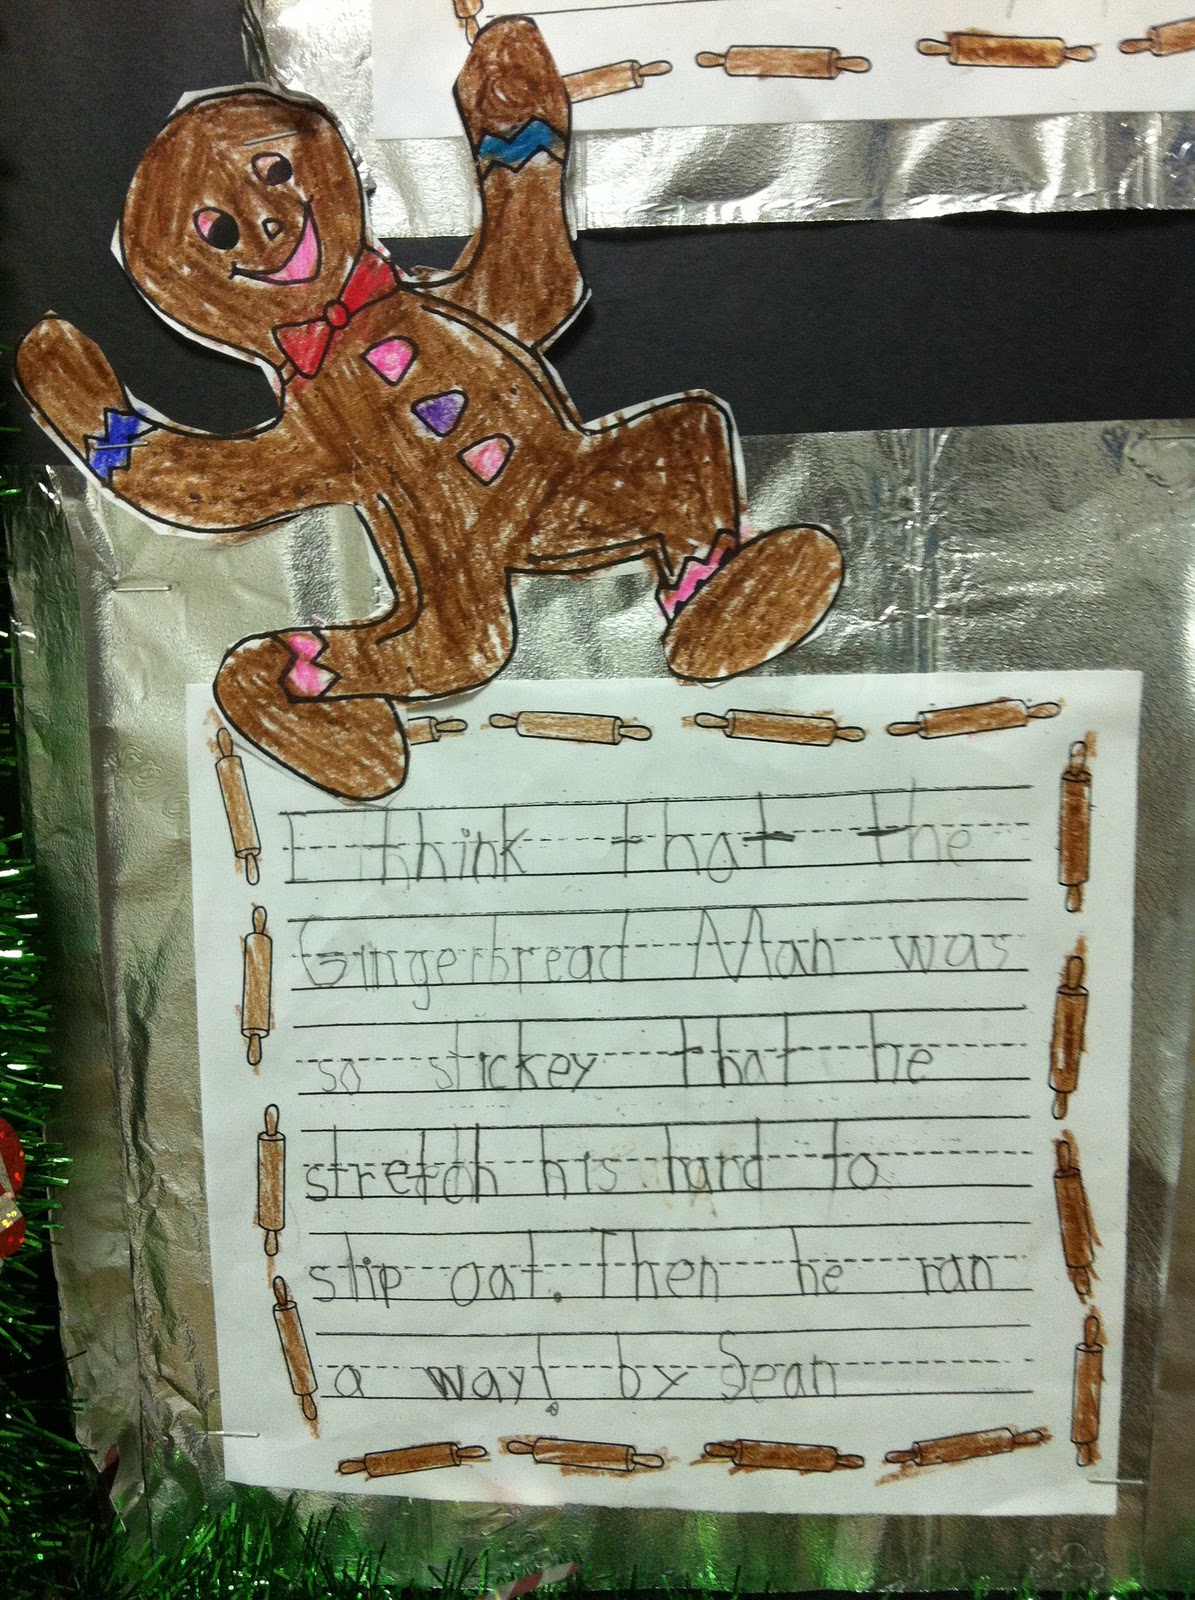 I think that the
Gingerbread Man was
so stickey that he
stretch his hand to
slip oat. Then he ran
a way! by Sean